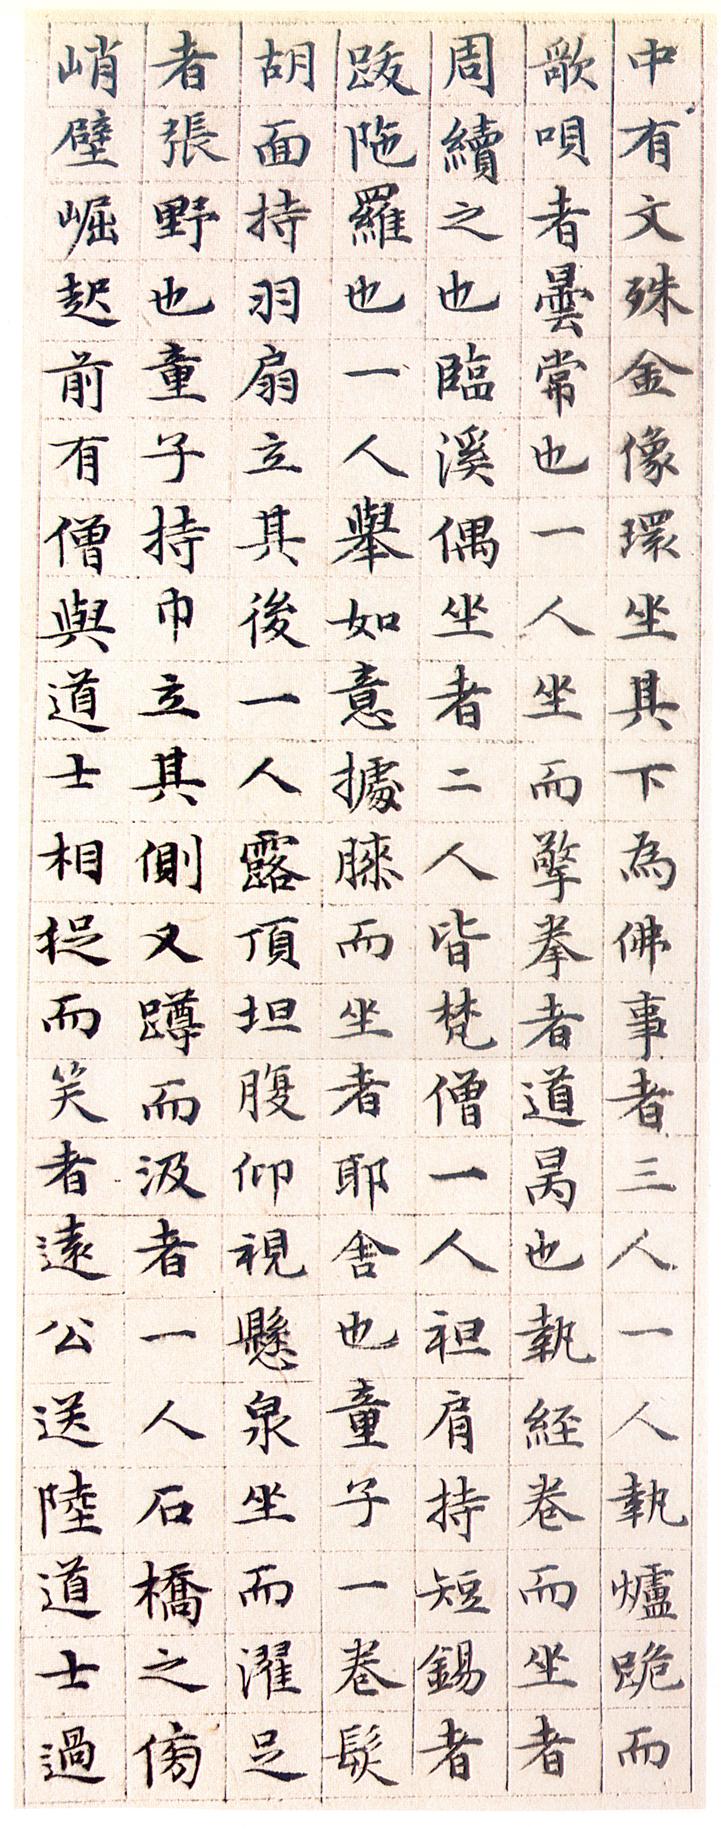 中有文殊金像環坐其下為佛事者三人一人執爐跪而
歌唄者曇常也一人坐而擎拳者道昺也執経卷而坐者
周續之也臨溪偶坐者二人皆梵僧一人袒肩持短錫者
跋陁羅也一人舉如意據膝而坐者耶舍也童子一卷髮
胡面持羽扇立其後一人露頂坦腹仰視懸泉坐而濯足
者張野也童子持巾立其側又蹲而汲者一人石橋之傍
峭壁崛起前有僧與道士相捉而笑者遠公送陸道士過